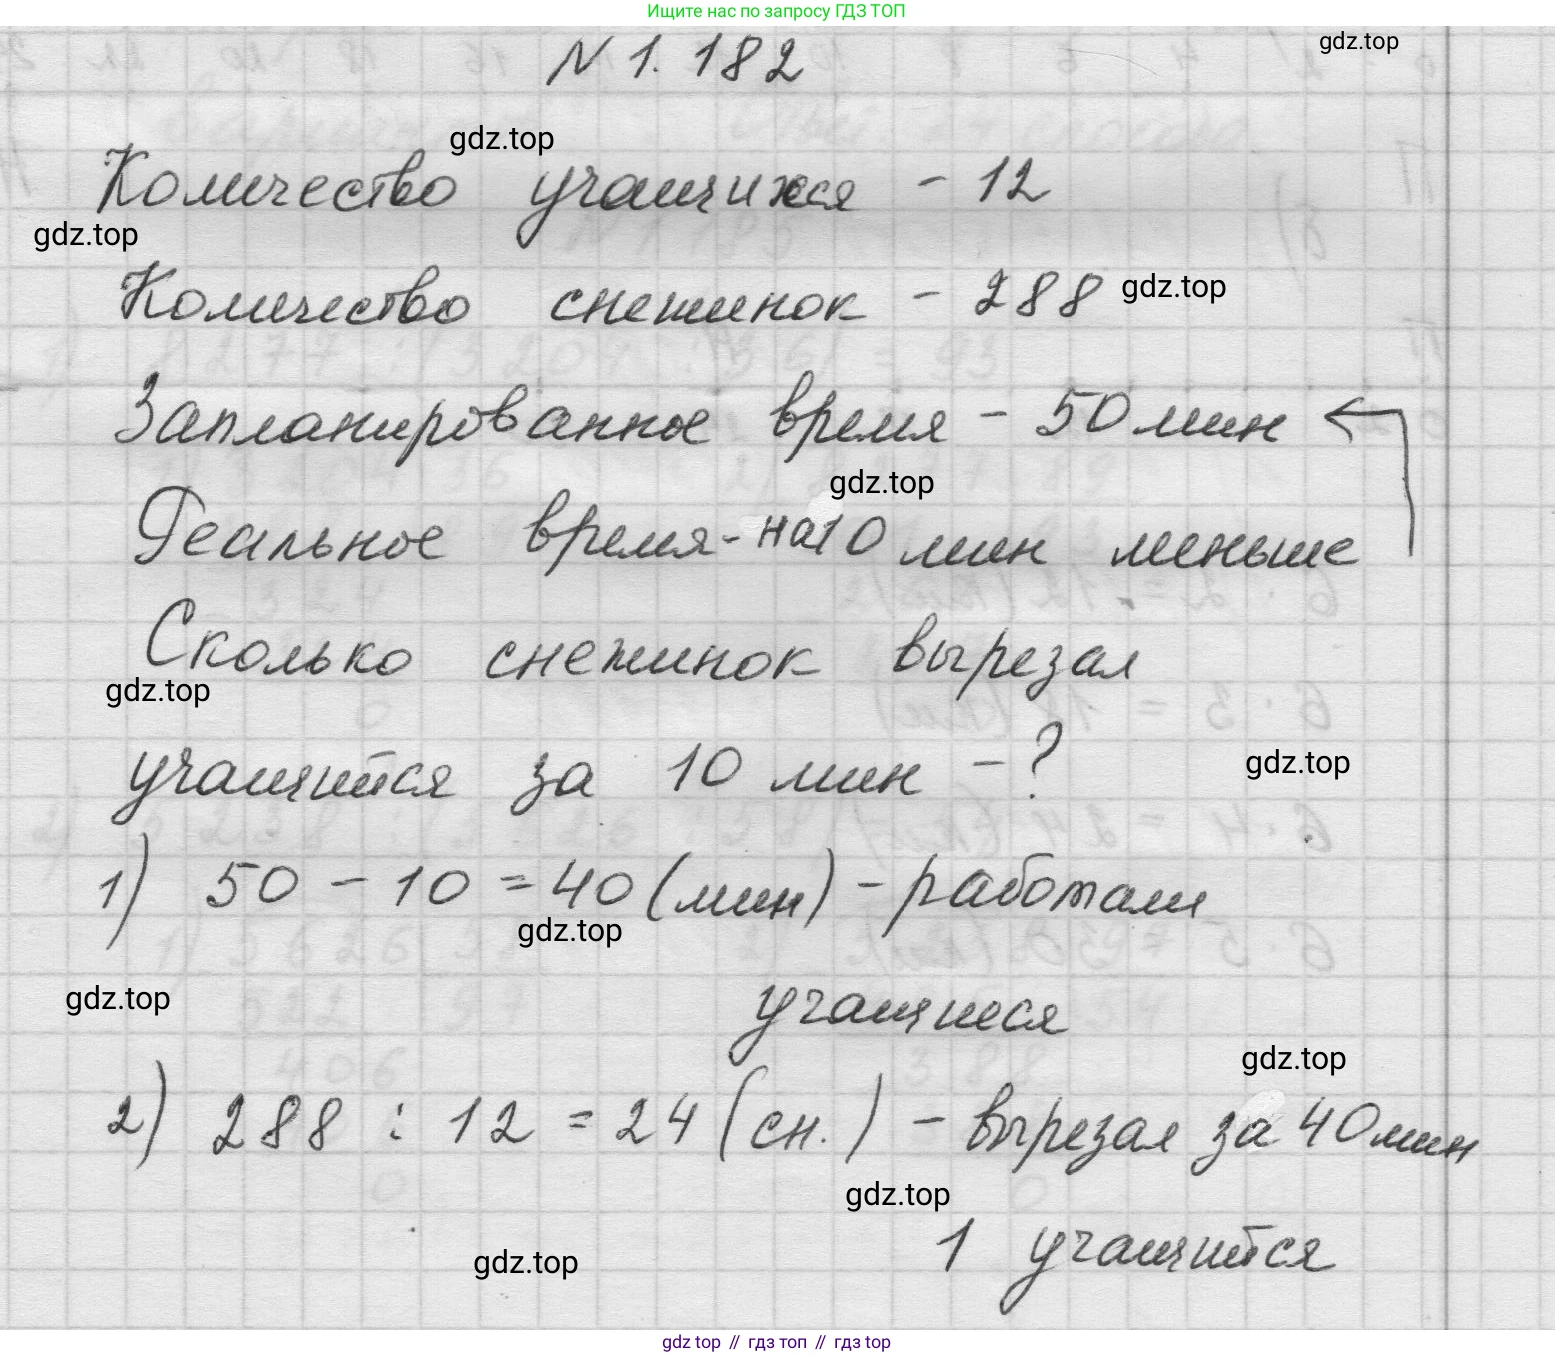 Ищите нас по запросу ГДЗ ТОП
gdz.top
N 1. 182
gdz.top
Количество учащихся - 12
gdz.top
Количество снежинок - 288
gdz.top
Запланированное время - 50 мин
gdz.top
Реальное время - на 10 мин меньше
Сколько снежинок вырезал
gdz.top
учащийся за 10 мин - ?
gdz.top
1) 50 - 10 = 40 (мин) - работали
gdz.top
gdz.top
учащиеся
gdz.top
2) 288 : 12 = 24 (сн.) - вырезал за 40 мин
gdz.top
1 учащийся
gdz.top
gdz top // гдз топ // gdz top